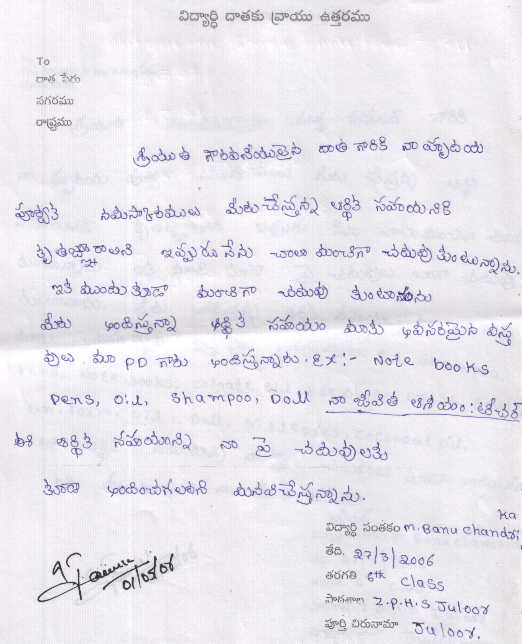 విద్యార్థి దాతకు వ్రాయు ఉత్తరము
To
దాత పేరు
నగరము
రాష్ట్రము
శ్రీయుత గౌరవనీయులైన దాత గారికి నా హృదయ
పూర్వక నమస్కారములు మీరు చేస్తున్న ఆర్థిక సహాయనికి
కృతజ్ఞురాలిని ఇప్పుడు నేను చాలా మంచిగా చదువు కుంటున్నాను.
ఇక ముందు కూడా మంచిగా చదువు కుంటాను
మీరు అందిస్తున్నా ఆర్థిక సహాయం మాకు అవసరమైన వస్తు
వులు మా PD గారు అందిస్తున్నారు. Ex:- Note books
Pens, Oil, Shampoo, Doll నా జీవిత ఆశయం: టీచర్
ఆర్థిక సహాయాన్ని నా పై చదువులకు
కూడా అందించగలరని మనవిచేస్తున్నాను.
Ka
విద్యార్థి సంతకం M. Banu Chandri
తేది. 27/3/2006
తరగతి 6th Class
పాఠశాల Z.P.H.S Juloor
పూర్తి చిరునామా Juloor.